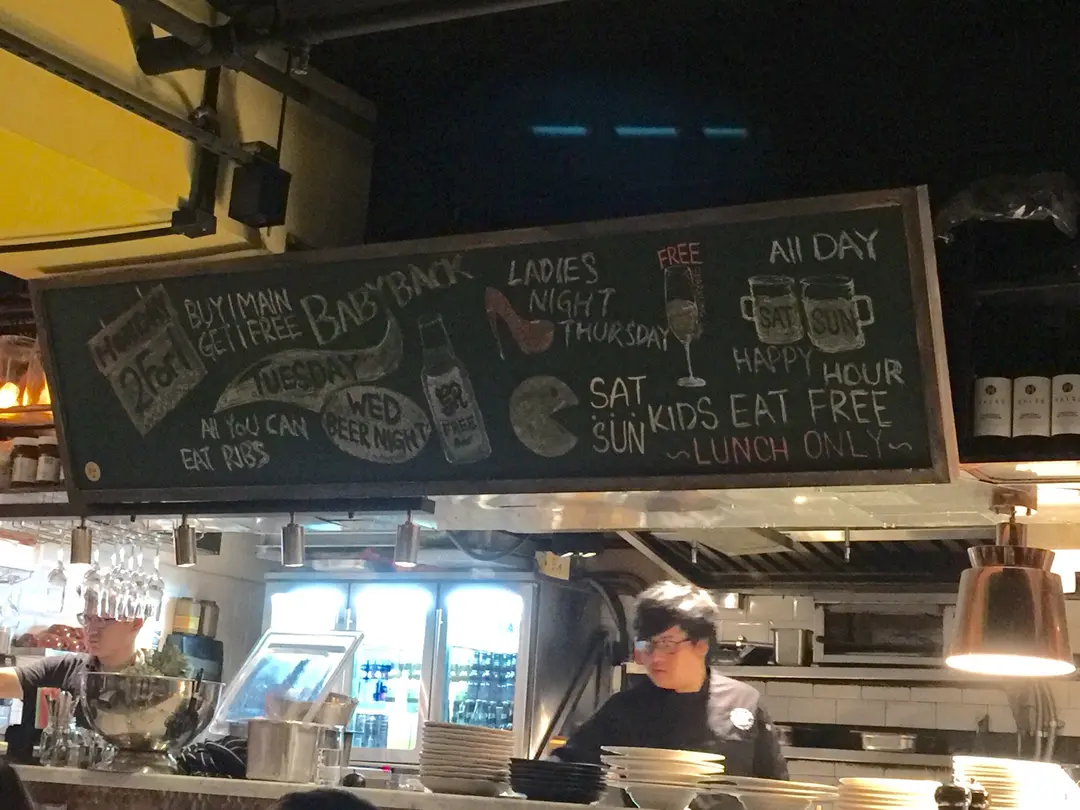 Monday
2 For 1
BUY 1 MAIN
GET 1 FREE
BABYBACK
TUESDAY
All YOU CAN
EAT RIBS
WED
BEER NIGHT
FREE
LADIES
NIGHT
THURSDAY
FREE
All DAY
SAT
SUN
HAPPY HOUR
SAT
SUN
KIDS EAT FREE
~LUNCH ONLY~